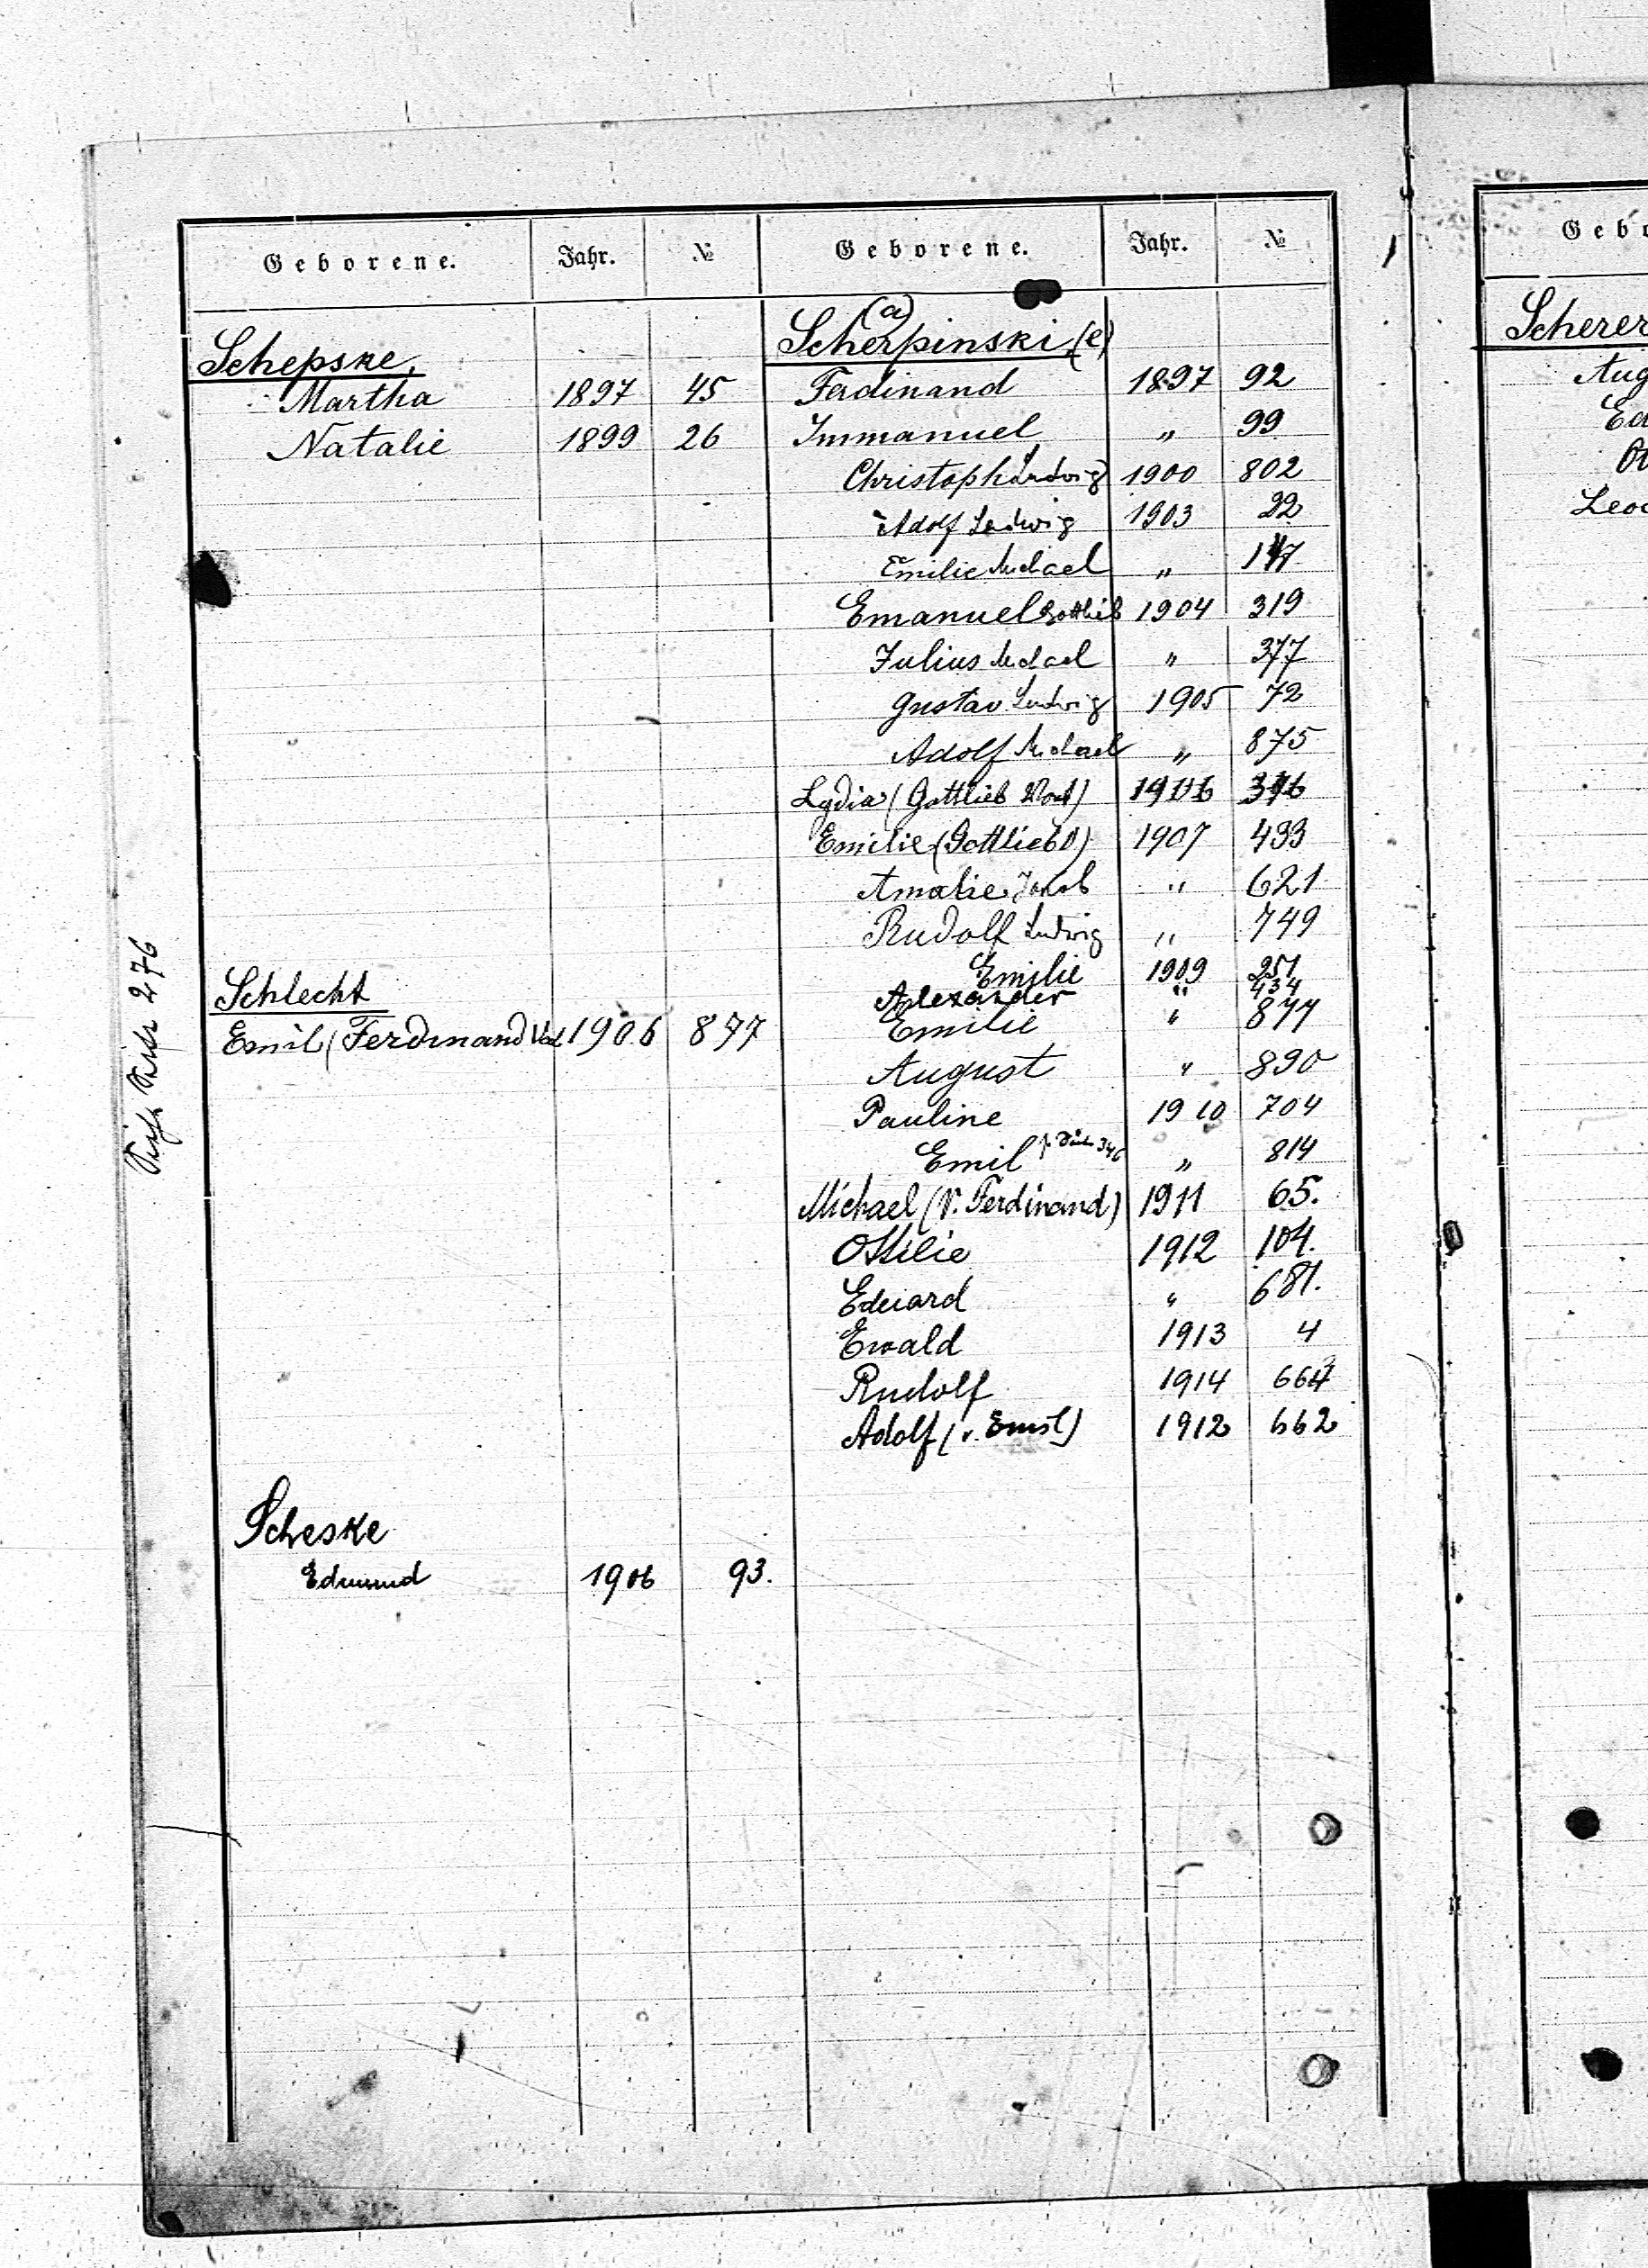 Geborene. Jahr. №
Schepske.
Martha 1897 45
Natalie 1899 26
Schlecht
Emil (Ferdinand 1906 877
Scheske
Edmund 1906 93.
276
Geborene. Jahr. №
(a)
Scherpinski (e)
Ferdinand 1897 92
Immanuel " 99
Christoph Ludwig 1900 802
Adolf Ludwig 1903 22
Emilie Michael "
Emanuel Gottlieb 1904 319
Julius Michael " 377
Gustav Ludwig 1905 72
Adolf Michael " 875
Lydia (Gottlieb 1906
Emilie (Gottlieb 1907 433
Amalie Jakob " 621
Rudolf Ludwig " 749
Emilie 1909 251
Alexander " 434
Emilie " 877
August " 890
Pauline 1910 704
Emil 346 " 814
Michael (V. Ferdinand) 1911 65.
Ottilie 1912 104.
Eduard " 681.
Ewald 1913 4
Rudolf 1914 664
Adolf (v. Ernst) 1912 662
Gebo
Scherer
Aug
Ed
Leo